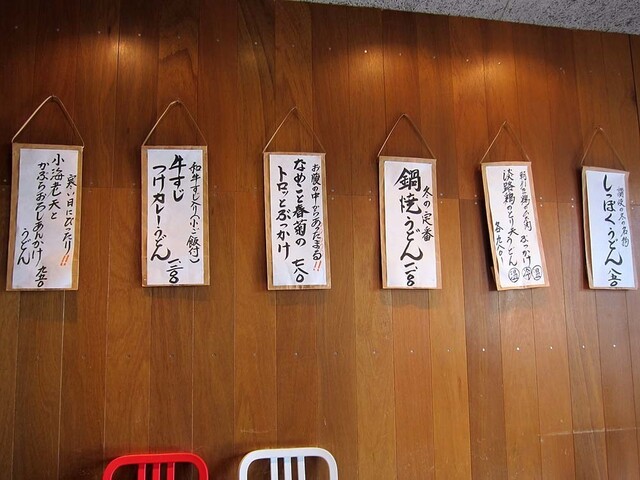 讃岐の冬の名物
しっぽくうどん 八五〇
ぶっかけ
淡路鶏のとり天うどん
各九八〇
冬の定番
鍋焼うどん
お腹の中からあったまる!!
なめこと春菊の 七八〇
トロッとぶっかけ
和牛すじ入り(小ご飯付)
牛すじ
つけカレーうどん
寒い日にぴったり!!
小海老天と
かぶらおろしあんかけ 九五〇
うどん